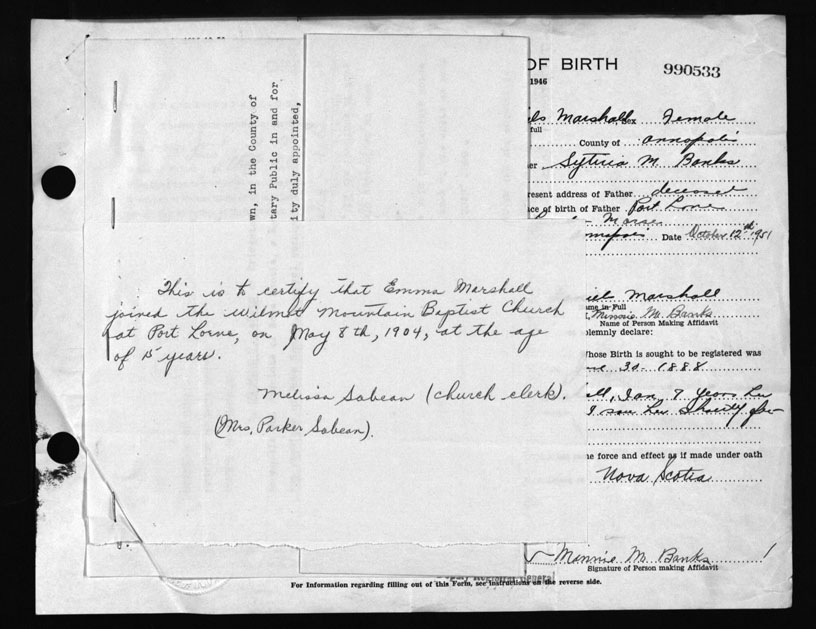 OF BIRTH
990533
1946
Marshall Sex Female
full
County of Annapolis
her Sytira M. Banks
resent address of Father deceased
ace of birth of Father Port Lorne
Morse
Date October 12th 1951
wn, in the County of
tary Public in and for
ity duly appointed,
This is to certify that Emma Marshall
joined the Wilmot Mountain Baptist Church
at Port Lorne, on May 8th, 1904, at the age
of 15 years.
Melissa Sabean (church clerk).
(Mrs. Parker Sabean).
Marshall
ame in Full
Minnie M. Banks
Name of Person Making Affidavit
olemnly declare:
hose Birth is sought to be registered was
1888
I am 7 years
I saw her shortly
e force and effect as if made under oath
Nova Scotia
Minnie M. Banks
Signature of Person making Affidavit
For Information regarding filling out of this Form, see instructions on the reverse side.